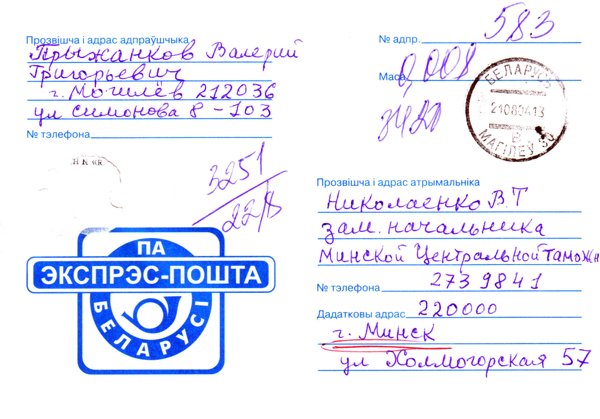 Прозвішча і адрас адпраўшчыка
Прыжанков Валерий
Григорьевич
г. Могилёв 212036
ул Симонова 8 - 103
№ тэлефона
3251
22/8
ПА
ЭКСПРЭС-ПОШТА
БЕЛАРУСІ
№ адпр. 583
Маса 0,008
3420
БЕЛАРУСЬ
МАГІЛЁЎ 30
Прозвішча і адрас атрымальніка
Николаенко В.Т
зам. начальника
Минской Центральной Таможн
№ тэлефона 273 9841
Дадатковы адрас 220000
г. Минск
ул Холмогорская 57